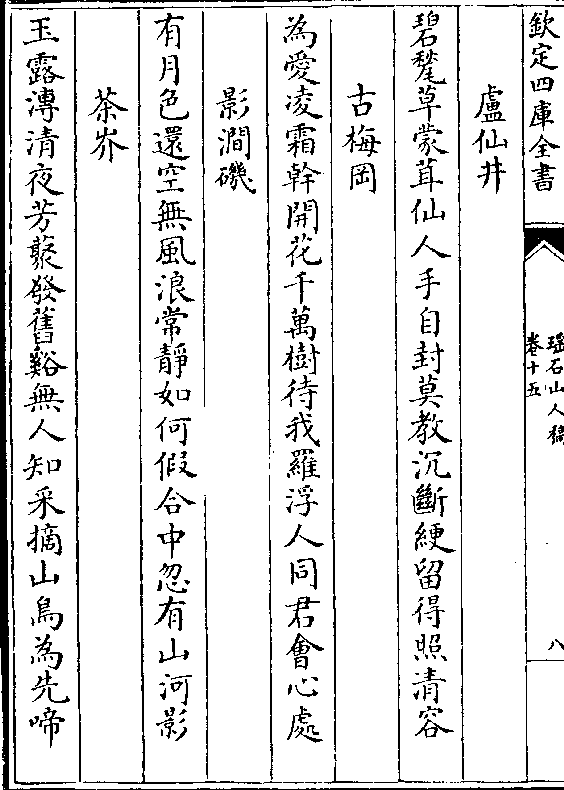 欽定四庫全書
瑶石山人稿
卷十五
八
盧仙井
碧甃草蒙茸仙人手自封莫教沉斷綆留得照清容
古梅岡
為愛凌霜幹開花千萬樹待我羅浮人同君會心處
影澗磯
有月色還空無風浪常靜如何假合中忽有山河影
茶岕
玉露漙清夜芳藂發舊谿無人知采摘山鳥為先啼